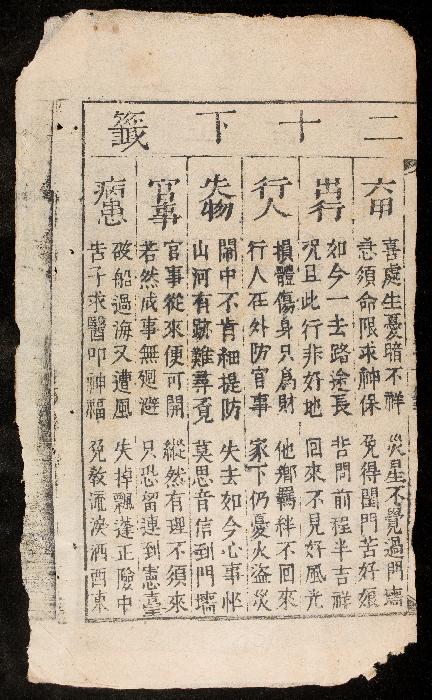 二十下籤
六甲
喜處生憂暗不祥 災星不覺過門墻
急須命限求神保 免得閨門苦好娘
出行
如今一去路途長 若問前程半吉祥
況且此行非好地 回來不見好風光
行人
損體傷身只爲財 他鄉羈絆不回來
行人在外防官事 家下仍憂火盜災
失物
閙中不肯細提防 失去如今心事忙
山河有跡難尋覓 莫思音信到門墻
官事
官事從來便可開 縱然有理不須來
若然成事無廻避 只恐留連到憲臺
病患
破船過海又遭風 失掉飄蓬正險中
告子求醫叩神福 免教流淚洒西東